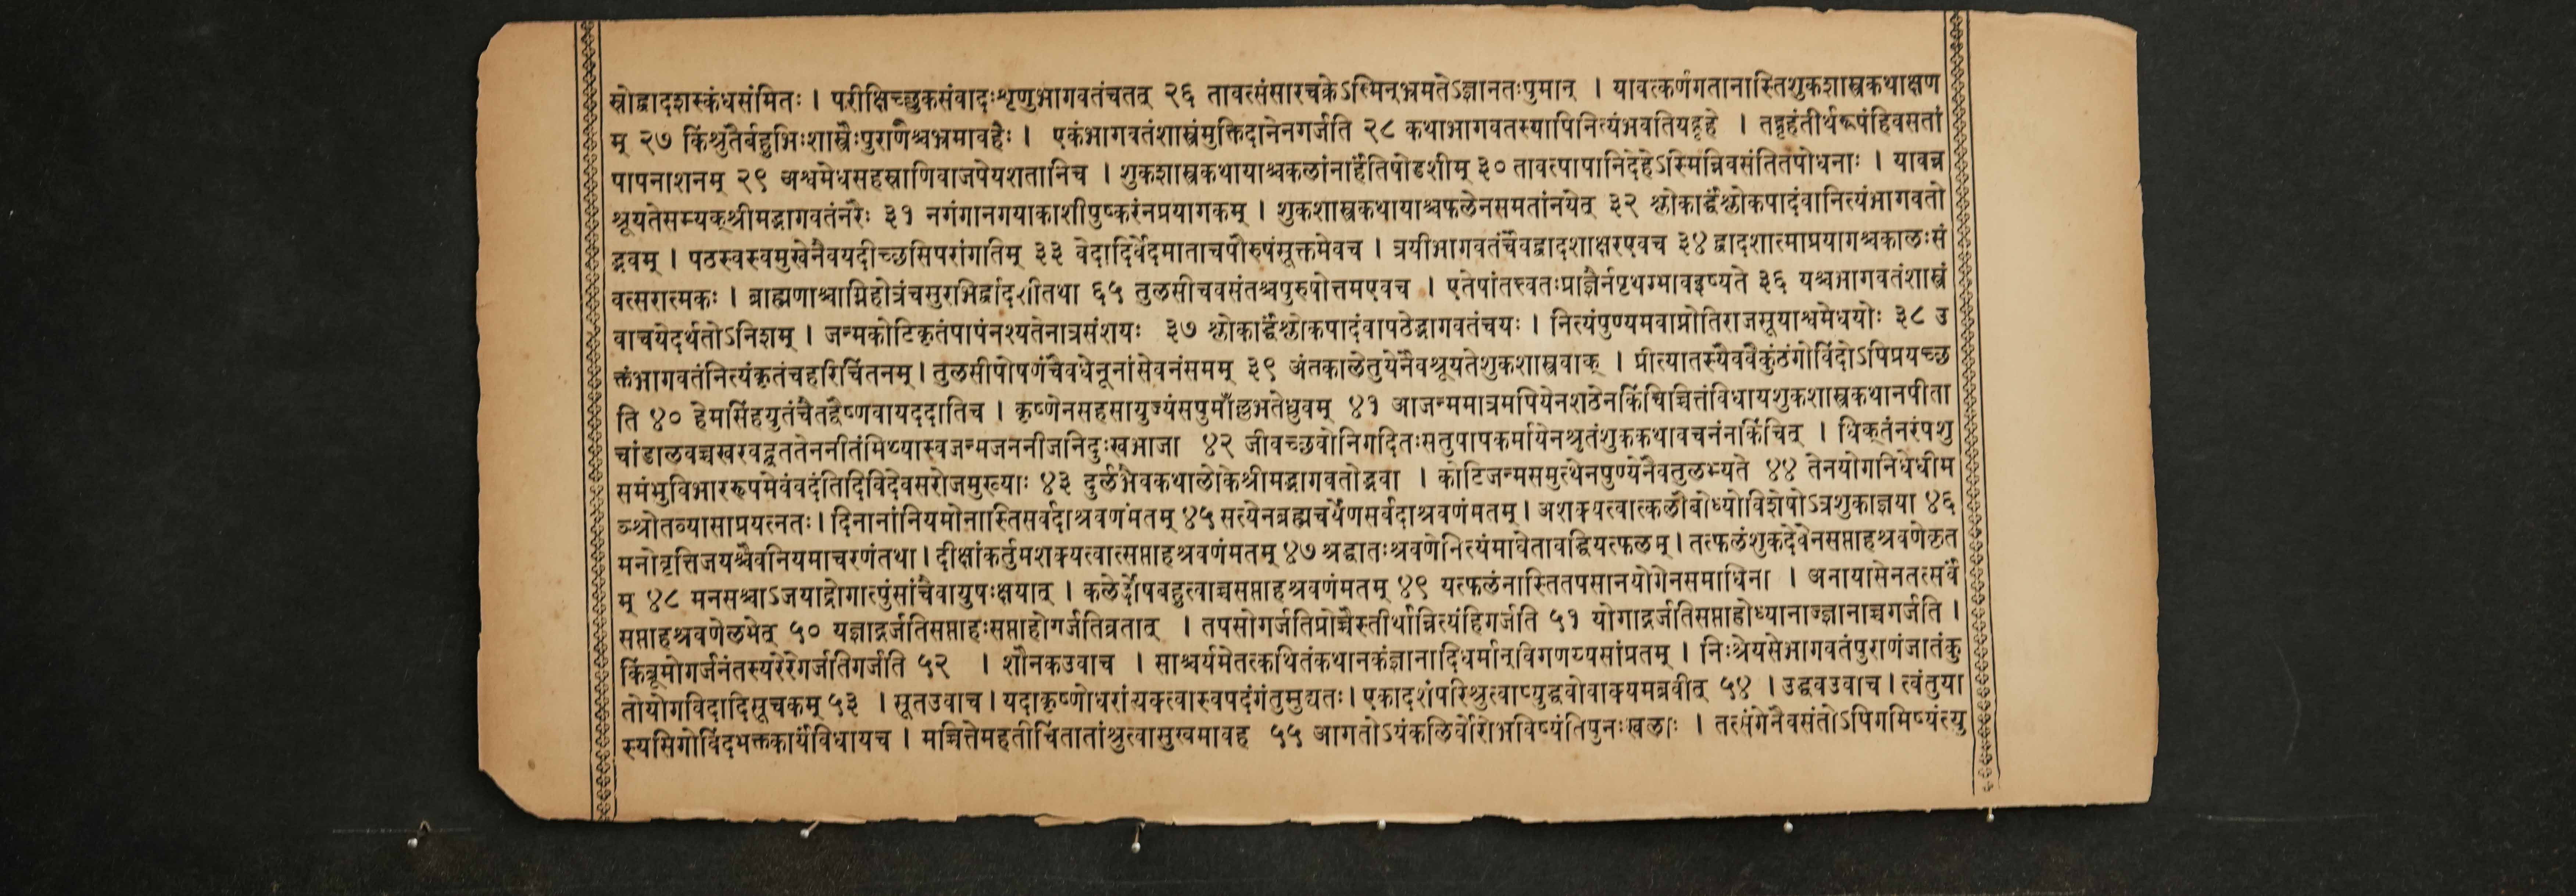 स्रोद्वादशस्कंधसंमितः । परीक्षिच्छुकसंवादःशृणुभागवतंचतत् २६ तावत्संसारचक्रेऽस्मिन्भ्रमतेऽज्ञानतःपुमान् । यावत्कर्णगतानास्तिशुकशास्त्रकथाक्षण
म् २७ किंश्रुतैर्बहुभिःशास्त्रैःपुराणैश्चभ्रमावहैः । एकंभागवतंशास्त्रंमुक्तिदानेनगर्जति २८ कथाभागवतस्यापिनित्यंभवतियद्गृहे । तद्गृहंतीर्थरूपंहिवसतां
पापनाशनम् २९ अश्वमेधसहस्राणिवाजपेयशतानिच । शुकशास्त्रकथायाश्चकलांनार्हंतिषोडशीम् ३० तावत्पापानिदेहेऽस्मिन्निवसंतितपोधनाः । यावन्न
श्रूयतेसम्यक्श्रीमद्भागवतंनरैः ३१ नगंगानगयाकाशीपुष्करंनप्रयागकम् । शुकशास्त्रकथायाश्चफलेनसमतांनयेत् ३२ श्लोकार्द्धंश्लोकपादंवानित्यंभागवतो
द्भवम् । पठस्वस्वमुखेनैवयदीच्छसिपरांगतिम् ३३ वेदादिर्वेदमाताचपौरुषंसूक्तमेवच । त्रयीभागवतंचैवद्वादशाक्षरएवच ३४ द्वादशात्माप्रयागश्चकालःसं
वत्सरात्मकः । ब्राह्मणाश्चाग्निहोत्रंचसुरभिर्द्वादशीतथा ६५ तुलसीचवसंतश्चपुरुषोत्तमएवच । एतेषांतत्त्वतःप्राज्ञैर्नपृथग्भावइष्यते ३६ यश्चभागवतंशास्त्रं
वाचयेदर्थतोऽनिशम् । जन्मकोटिकृतंपापंनश्यतेनात्रसंशयः ३७ श्लोकार्द्धंश्लोकपादंवापठेद्भागवतंचयः । नित्यंपुण्यमवाप्नोतिराजसूयाश्वमेधयोः ३८ उ
क्तंभागवतंनित्यंकृतंचहरिचिंतनम् । तुलसीपोषणंचैवधेनूनांसेवनंसमम् ३९ अंतकालेतुयेनैवश्रूयतेशुकशास्त्रवाक् । प्रीत्यातस्यैववैकुंठंगोविंदोऽपिप्रयच्छ
ति ४० हेमसिंहयुतंचैतद्वैष्णवायददातिच । कृष्णेनसहसायुज्यंसपुमाँल्लभतेध्रुवम् ४१ आजन्ममात्रमपियेनशठेनकिंचिच्चित्तंविधायशुकशास्त्रकथानपीता
चांडालवच्चखरवद्वततेननीतंमिथ्यास्वजन्मजननीजनिदुःखभाजा ४२ जीवच्छवोनिगदितःसतुपापकर्मायेनश्रुतंशुककथावचनंनकिंचित् । धिक्तंनरंपशु
समंभुविभाररूपमेवंवदंतिदिविदेवसरोजमुख्याः ४३ दुर्लभैवकथालोकेश्रीमद्भागवतोद्भवा । कोटिजन्मसमुत्थेनपुण्येनैवतुलभ्यते ४४ तेनयोगनिधेधीम
ञ्श्रोतव्यासाप्रयत्नतः । दिनानांनियमोनास्तिसर्वदाश्रवणंमतम् ४५ सत्येनब्रह्मचर्येणसर्वदाश्रवणंमतम् । अशक्यत्वात्कलौबोध्योविशेषोऽत्रशुकाज्ञया ४६
मनोवृत्तिजयश्चैवनियमाचरणंतथा । दीक्षांकर्तुमशक्यत्वात्सप्ताहश्रवणंमतम् ४७ श्रद्धातःश्रवणेनित्यंमाघेतावद्धियत्फलम् । तत्फलंशुकदेवेनसप्ताहश्रवणेकृत
म् ४८ मनसश्चाऽजयाद्रोगात्पुंसांचैवायुषःक्षयात् । कलेर्दोषबहुत्वाच्चसप्ताहश्रवणंमतम् ४९ यत्फलंनास्तितपसानयोगेनसमाधिना । अनायासेनतत्सर्वं
सप्ताहश्रवणेलभेत् ५० यज्ञाद्गर्जतिसप्ताहःसप्ताहोगर्जतिव्रतात् । तपसोगर्जतिप्रोच्चैस्तीर्थान्नित्यंहिगर्जति ५१ योगाद्गर्जतिसप्ताहोध्यानाज्ज्ञानाच्चगर्जति ।
किंब्रूमोगर्जनंतस्यरेरेगर्जतिगर्जति ५२ । शौनकउवाच । साश्चर्यमेतत्कथितंकथानकंज्ञानादिधर्मान्विगणय्यसांप्रतम् । निःश्रेयसेभागवतंपुराणंजातंकु
तोयोगविदादिसूचकम् ५३ । सूतउवाच । यदाकृष्णोधरांत्यक्त्वास्वपदंगंतुमुद्यतः । एकादशंपरिश्रुत्वाप्युद्धवोवाक्यमब्रवीत् ५४ । उद्धवउवाच । त्वंतुया
स्यसिगोविंदभक्तकार्यंविधायच । मच्चित्तेमहतीचिंतातांश्रुत्वासुखमावह ५५ आगतोऽयंकलिर्घोरोभविष्यंतिपुनःखलाः । तत्संगेनैवसंतोऽपिगमिष्यंत्यु